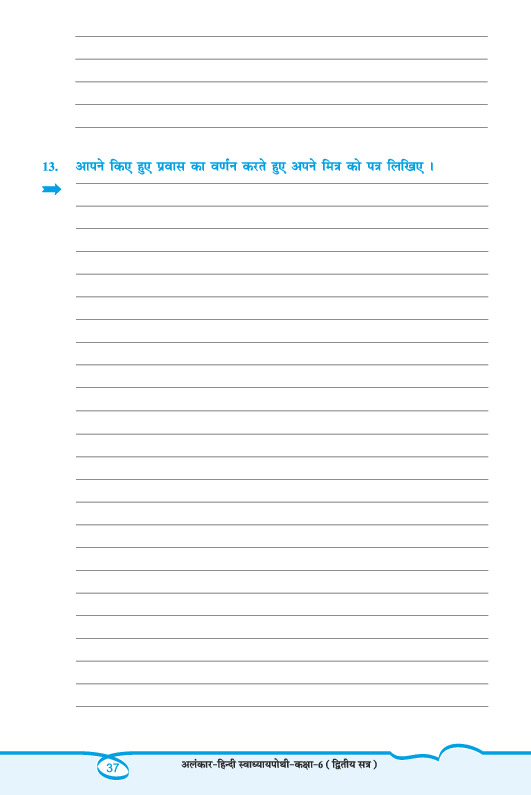 13. आपने किए हुए प्रवास का वर्णन करते हुए अपने मित्र को पत्र लिखिए ।
37
अलंकार-हिन्दी स्वाध्यायपोथी-कक्षा-6 ( द्वितीय सत्र )